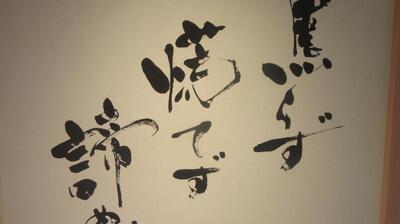 焦らず
慌てず
諦め